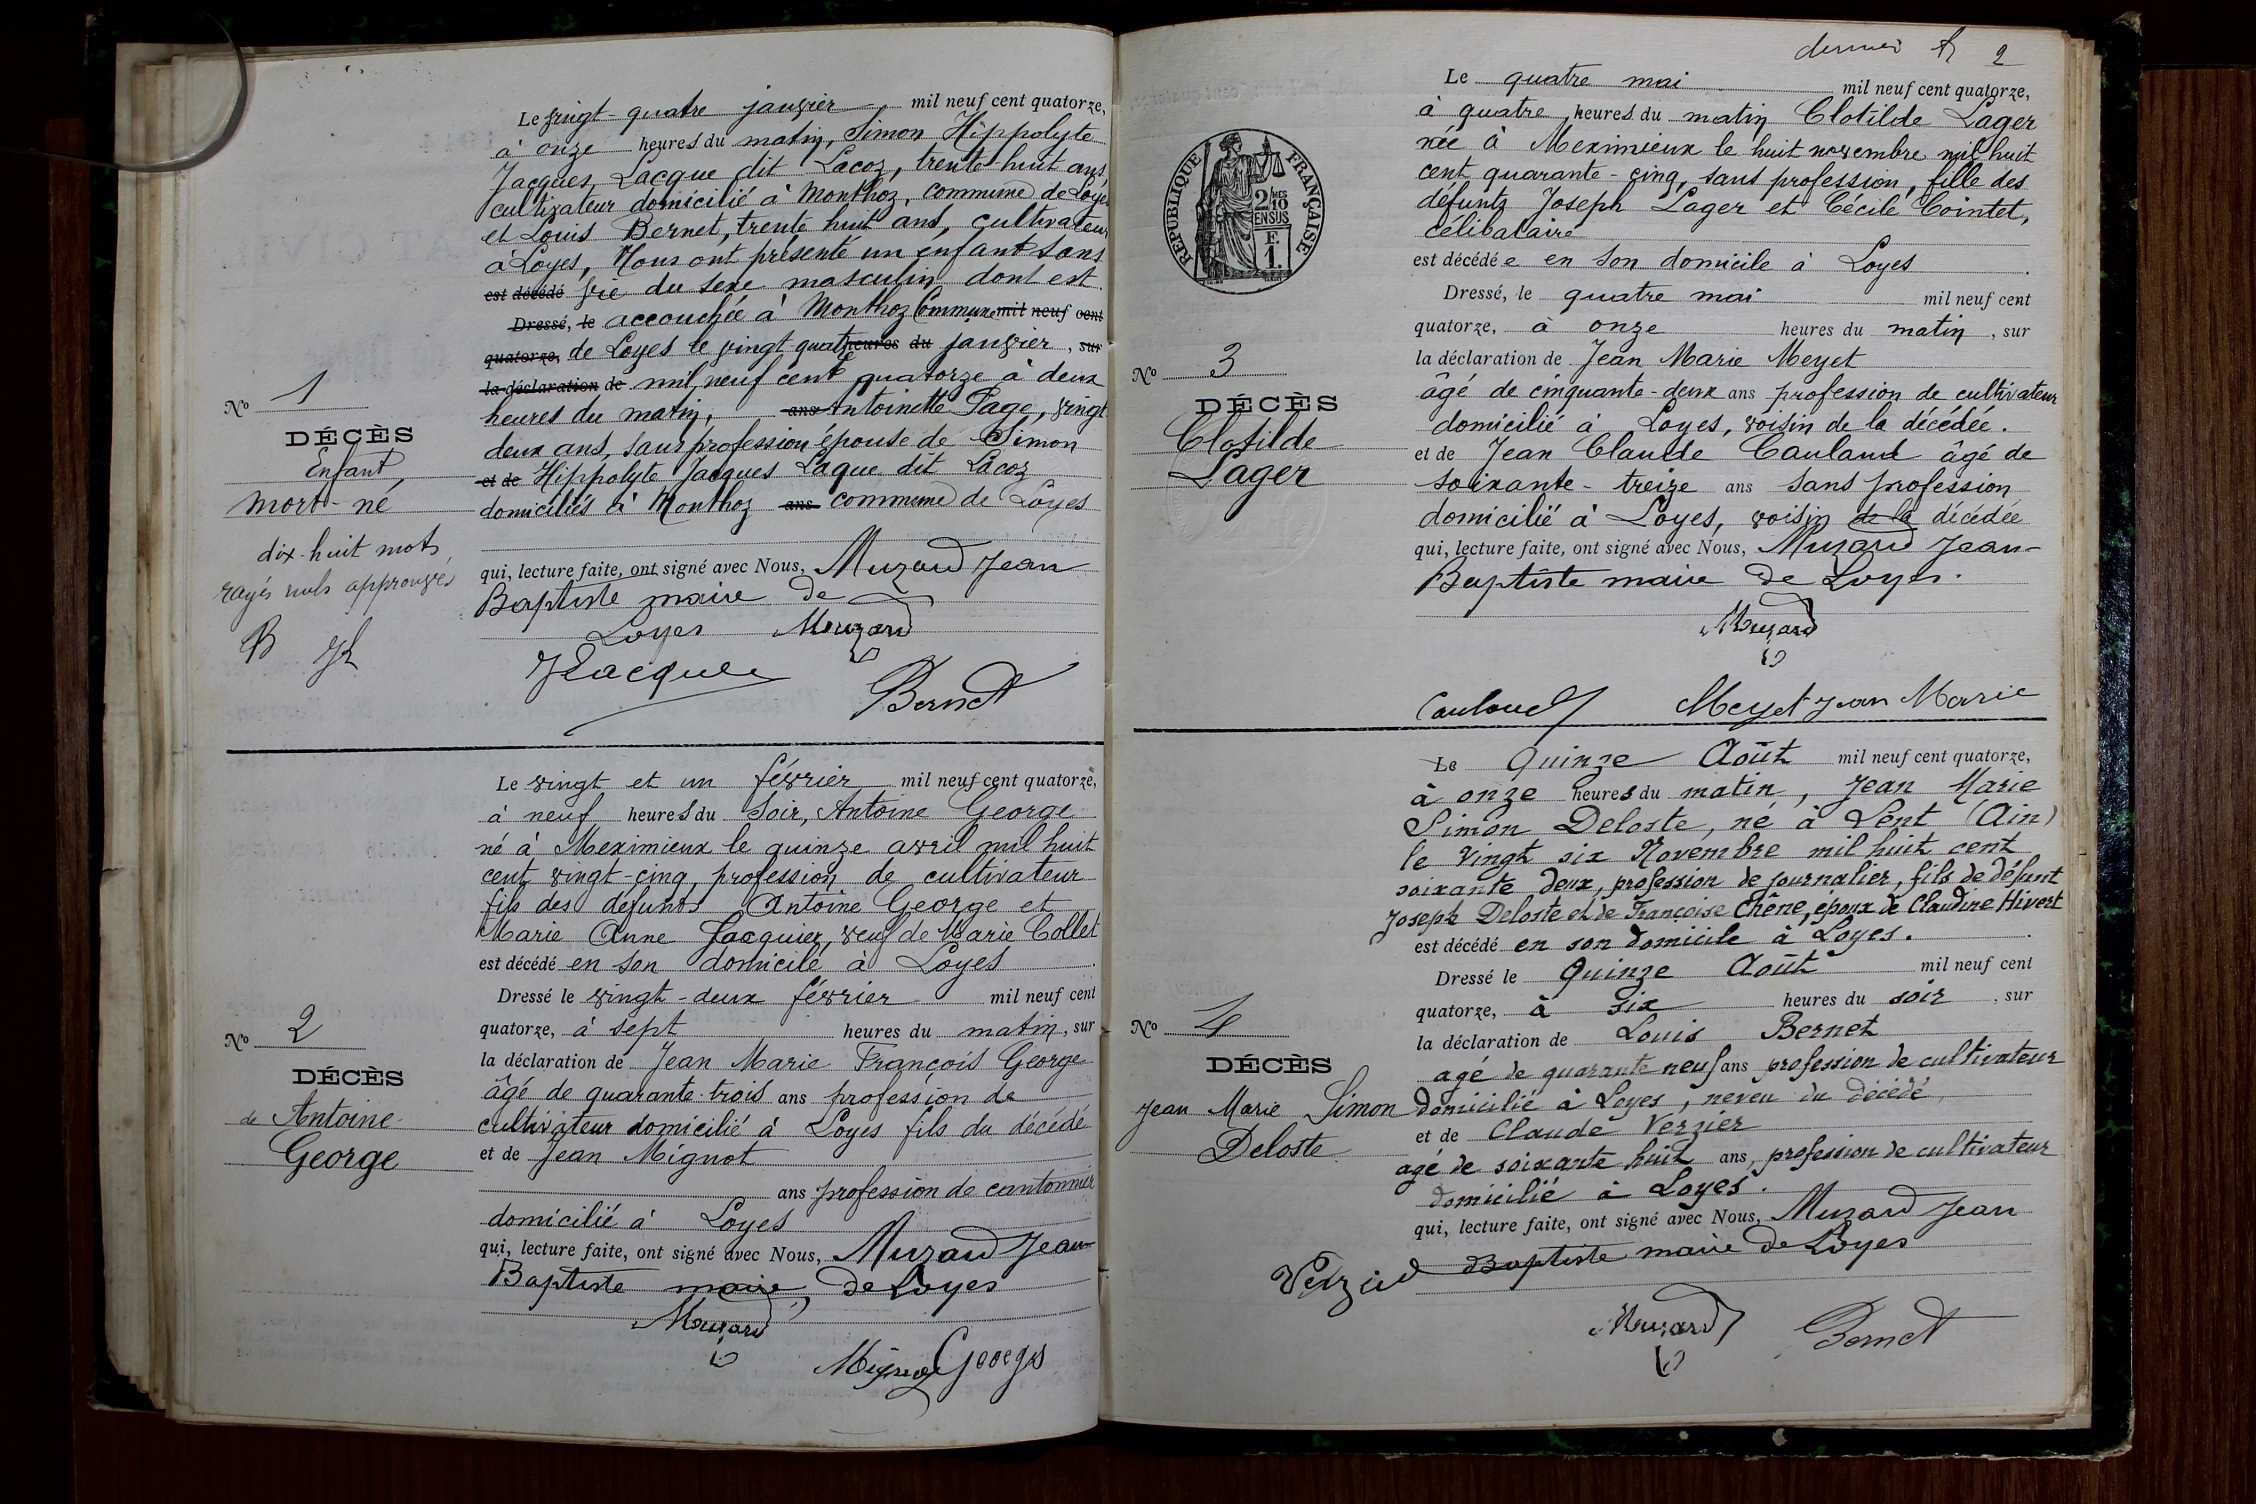 Le vingt-quatre janvier mil neuf cent quatorze,
à onze heures du matin, Simon Hippolyte
Jacques Lacque dit Lacoz, trente-huit ans,
cultivateur domicilié à Monthoz, commune de Loyes
et Louis Bernet, trente huit ans, cultivateur
à Loyes, Nous ont présenté un enfant sans
est décédé vie du sexe masculin dont est
Dressé, le accouchée à Monthoz Commune mil neuf cent
quatorze, de Loyes le vingt quatre heures du janvier, sur
la déclaration de mil neuf cent quatorze à deux
heures du matin, ans Antoinette Page, vingt
deux ans, sans profession épouse de Simon
et de Hippolyte Jacques Laque dit Lacoz
domiciliés à Monthoz ans commune de Loyes
qui, lecture faite, ont signé avec Nous, Muzard Jean
Baptiste maire de
Loyes Muzard
JLacque
Bernet
No 1
DÉCÈS
Enfant
mort-né
dix-huit mots
rayés nuls approuvés
B JL
Le vingt et un février mil neuf cent quatorze,
à neuf heures du soir, Antoine George
né à Meximieux le quinze avril mil huit
cent vingt-cinq, profession de cultivateur
fils des défunts Antoine George et
Marie Anne Jacquier, veuf de Marie Collet
est décédé en son domicile à Loyes
Dressé le vingt-deux février mil neuf cent
quatorze, à sept heures du matin, sur
la déclaration de Jean Marie François George
âgé de quarante-trois ans profession de
cultivateur domicilié à Loyes fils du décédé
et de Jean Mignot
ans profession de cantonnier
domicilié à Loyes
qui, lecture faite, ont signé avec Nous, Muzard Jean
Baptiste maire, de Loyes
Muzard
Mignot Georges
No 2
DÉCÈS
de Antoine
George
dernier 2
Le quatre mai mil neuf cent quatorze,
à quatre heures du matin Clotilde Lager
née à Meximieux le huit novembre mil huit
cent quarante-cinq, sans profession, fille des
défunts Joseph Lager et Cécile Cointet,
célibataire
est décédée en son domicile à Loyes
Dressé, le quatre mai mil neuf cent
quatorze, à onze heures du matin, sur
la déclaration de Jean Marie Meyet
âgé de cinquante-deux ans profession de cultivateur
domicilié à Loyes, voisin de la décédée.
et de Jean Claude Cauland âgé de
soixante-treize ans sans profession
domicilié à Loyes, voisin de la décédée
qui, lecture faite, ont signé avec Nous, Muzard Jean-
Baptiste maire de Loyes.
Muzard
Meyet Jean Marie
RÉPUBLIQUE FRANÇAISE
2/10MES
EN SUS
F.
1.
No 3
DÉCÈS
Clotilde
Lager
Le Quinze Août mil neuf cent quatorze,
à onze heures du matin, Jean Marie
Simon Deloste, né à Lent (Ain)
le vingt six Novembre mil huit cent
soixante deux, profession de journalier, fils de défunt
Joseph Deloste et de Françoise Chêne, époux de Claudine Hivert
est décédé en son domicile à Loyes.
Dressé le Quinze Août mil neuf cent
quatorze, à six heures du soir, sur
la déclaration de Louis Bernet
agé de quarante neuf ans profession de cultivateur
domicilié à Loyes, neveu du décédé,
et de Claude Verzier
agé de soixante huit ans, profession de cultivateur
domicilié à Loyes.
qui, lecture faite, ont signé avec Nous, Muzard Jean
Baptiste maire de Loyes
Verzier
Muzard
Bernet
No 4
DÉCÈS
Jean Marie Simon
Deloste